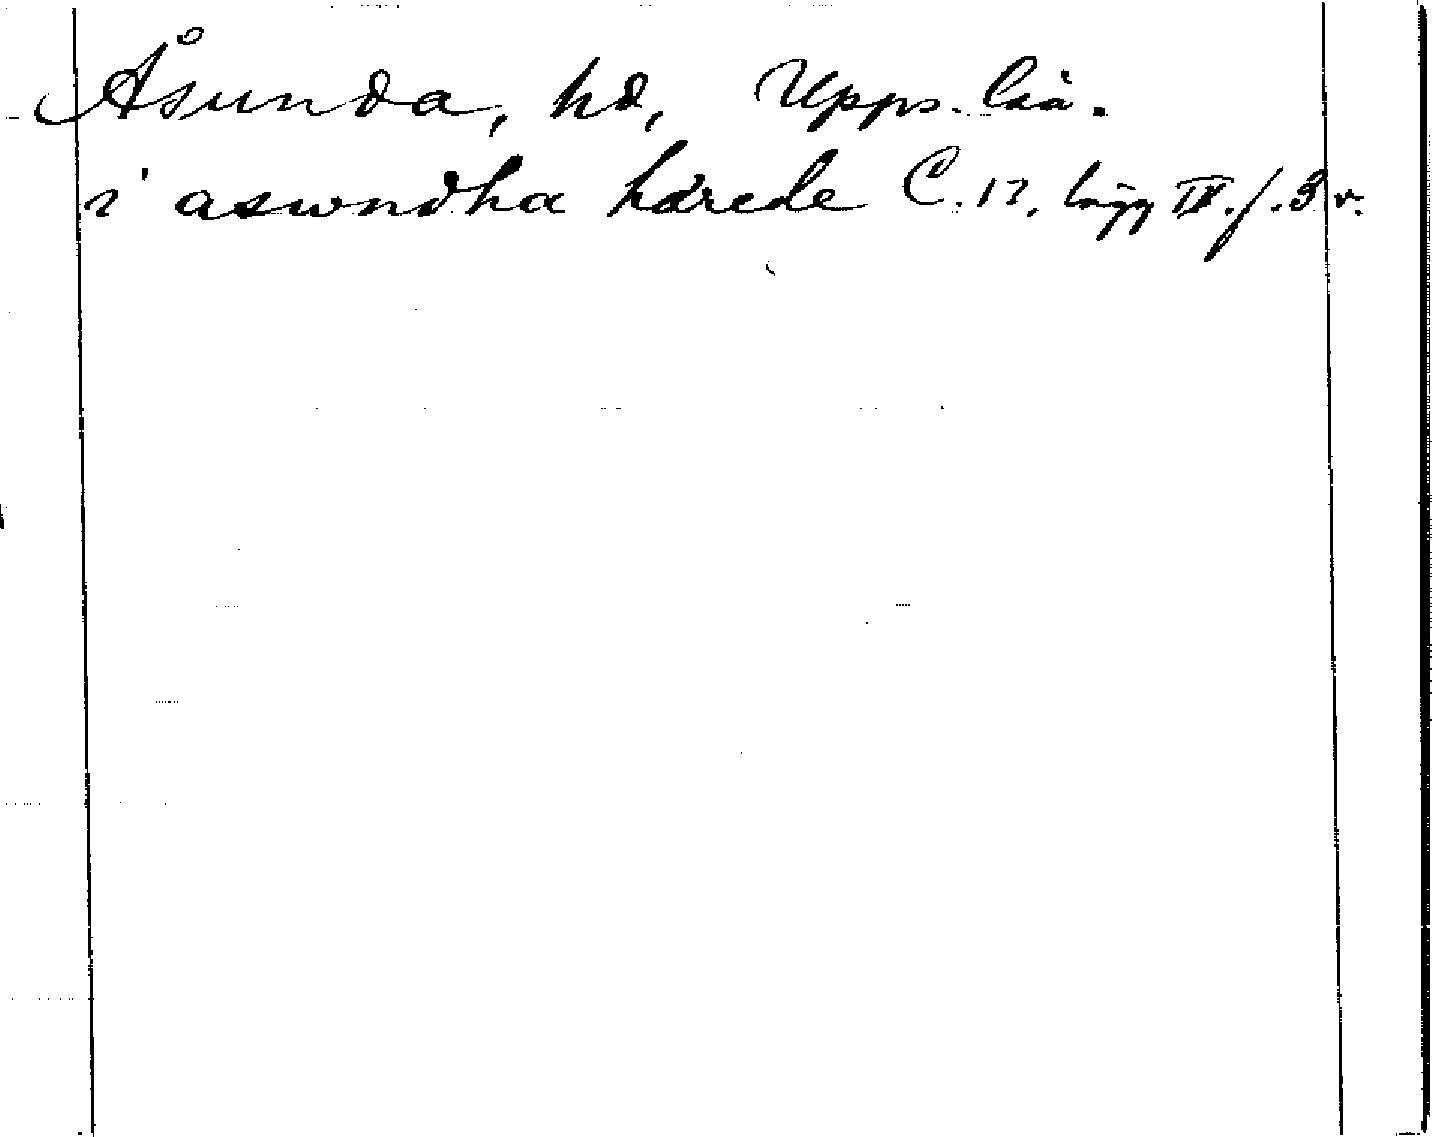 Åsunda, hd, Upps. län.
i aswndha härede C. 12, lägg IV. f. 3 v.